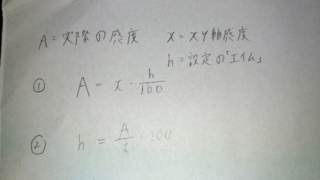 A = 実際の感度　x = xy軸感度
h = 設定の「エイム」
① A = x · h/100
② h = A/x · 100